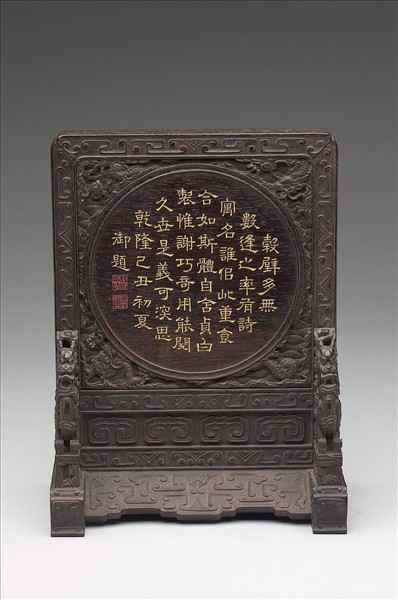 穀璧多無
數逢之率有詩
寓名誰侣此重食
合如斯體自含貞白
製惟謝巧奇用能閱
久是義可深思
乾隆己丑初夏
御題